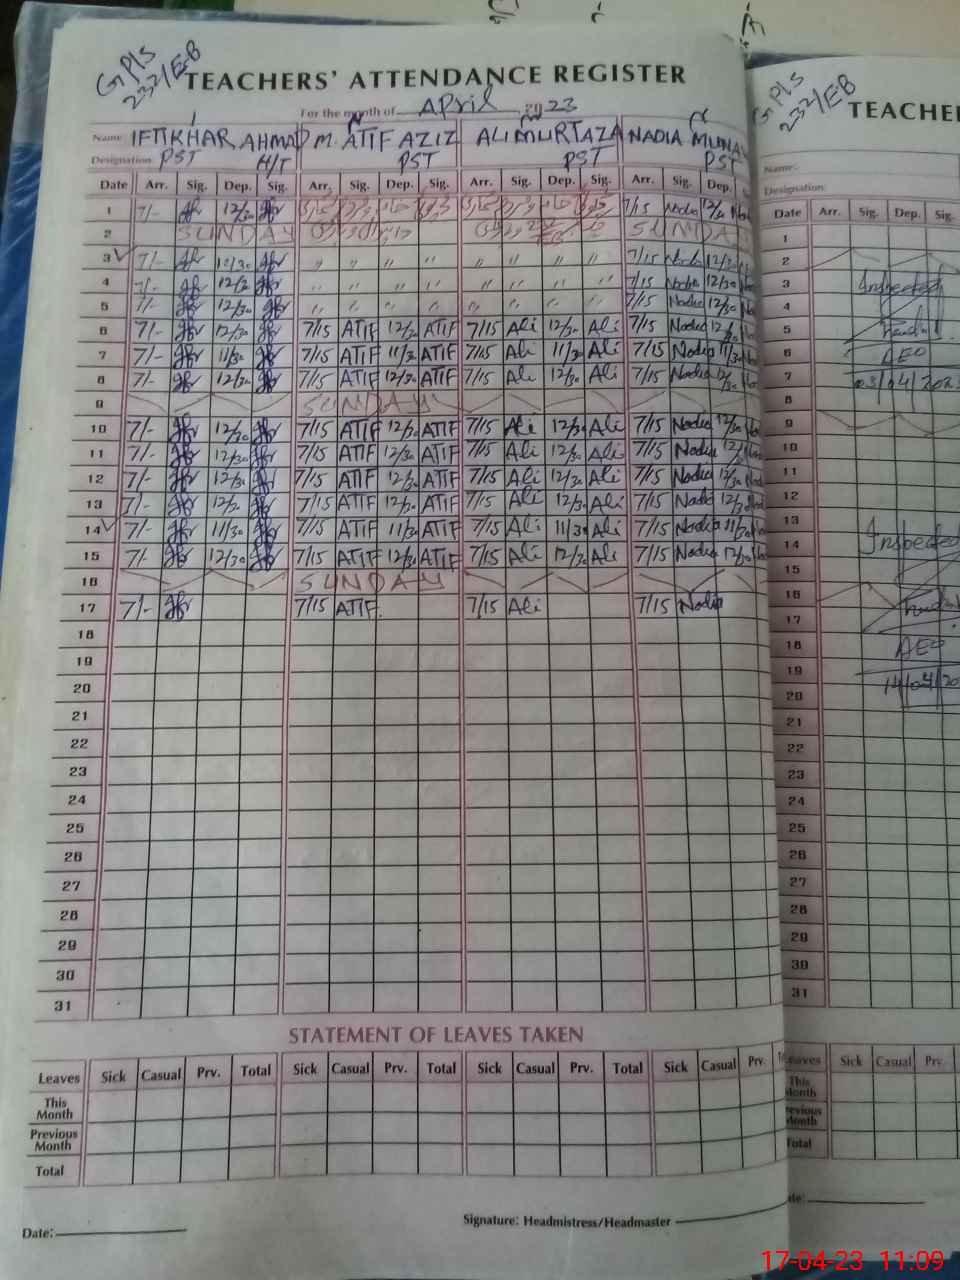 GPS
232/E-B
TEACHERS' ATTENDANCE REGISTER
For the month of April 2023
Name IFTIKHAR AHMAD M. ATIF AZIZ ALI MURTAZA NADIA MUNAW
Designation PST H/T PST PST PST
Date Arr. Sig. Dep. Sig. Arr. Sig. Dep. Sig. Arr. Sig. Dep. Sig. Arr. Sig. Dep.
1 7/- 12/30 7/15 Nadia 12/30
2 SUNDAY SUNDAY
3 7/- 12/30 〃 〃 〃 〃 〃 〃 〃 〃 7/15 Nadia 12/30
4 7/- 12/30 〃 〃 〃 〃 〃 〃 〃 〃 7/15 Nadia 12/30
5 7/- 12/30 〃 〃 〃 〃 〃 〃 〃 〃 7/15 Nadia 12/30
6 7/- 12/30 7/15 ATIF 12/30 ATIF 7/15 Ali 12/30 Ali 7/15 Nadia 12/30
7 7/- 11/30 7/15 ATIF 11/30 ATIF 7/15 Ali 11/30 Ali 7/15 Nadia 11/30
8 7/- 12/30 7/15 ATIF 12/30 ATIF 7/15 Ali 12/30 Ali 7/15 Nadia 12/30
9 SUNDAY
10 7/- 12/30 7/15 ATIF 12/30 ATIF 7/15 Ali 12/30 Ali 7/15 Nadia 12/30
11 7/- 12/30 7/15 ATIF 12/30 ATIF 7/15 Ali 12/30 Ali 7/15 Nadia 12/30
12 7/- 12/30 7/15 ATIF 12/30 ATIF 7/15 Ali 12/30 Ali 7/15 Nadia 12/30
13 7/- 12/30 7/15 ATIF 12/30 ATIF 7/15 Ali 12/30 Ali 7/15 Nadia 12/30
14 7/- 11/30 7/15 ATIF 11/30 ATIF 7/15 Ali 11/30 Ali 7/15 Nadia 11/30
15 7/- 12/30 7/15 ATIF 12/30 ATIF 7/15 Ali 12/30 Ali 7/15 Nadia 12/30
16 SUNDAY
17 7/- 7/15 ATIF 7/15 Ali 7/15 Nadia
18
19
20
21
22
23
24
25
26
27
28
29
30
31
STATEMENT OF LEAVES TAKEN
Leaves Sick Casual Prv. Total Sick Casual Prv. Total Sick Casual Prv. Total Sick Casual Prv.
This Month
Previous Month
Total
Date:
Signature: Headmistress/Headmaster
GPS
232/EB
TEACHE
Name
Designation
Date Arr. Sig. Dep. Sig.
1
2
3 Inspected
4
5
6 AEO
7 03/04/202
8
9
10
11
12
13
14 Inspected
15
16
17
18 AEO
19
20 14/04/20
21
22
23
24
25
26
27
28
29
30
31
Leaves Sick Casual Prv.
This Month
Previous Month
Total
17-04-23 11:09